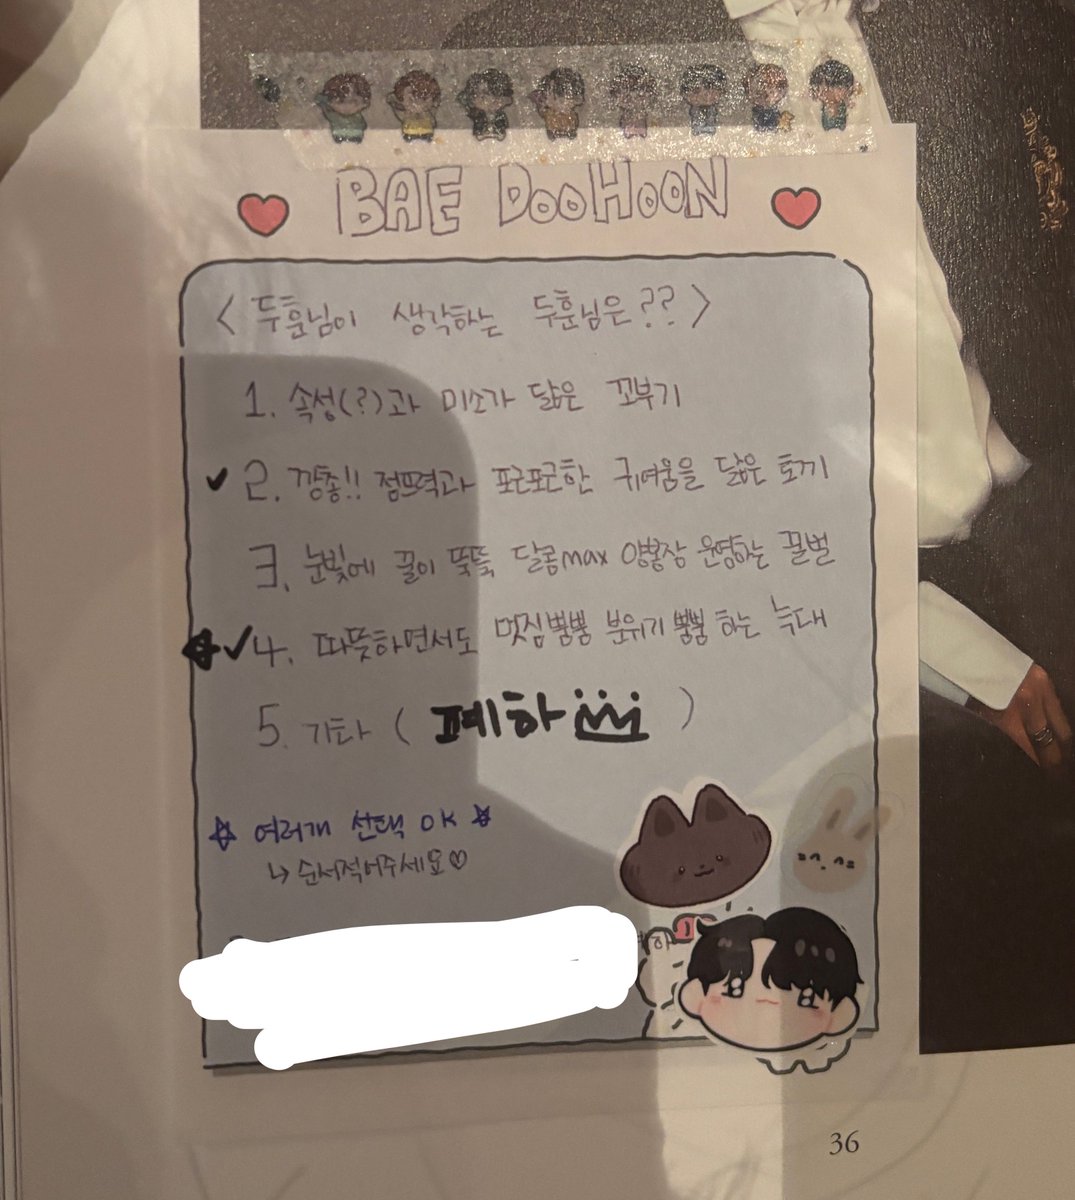 BAE DOOHOON
< 두훈님이 생각하는 두훈님은?? >
1. 속성(?)과 미소가 닮은 꼬부기
✓ 2. 깡총!! 점프력과 포근포근한 귀여움을 닮은 토끼
3. 눈빛에 꿀이 뚝뚝 달콤max 양봉장 운영하는 꿀벌
☆✓ 4. 따뜻하면서도 멋짐뿜뿜 분위기뿜뿜 하는 늑대
5. 기타 ( 폐하 )
☆ 여러개 선택 OK ☆
↳ 순서적어주세요♡
36